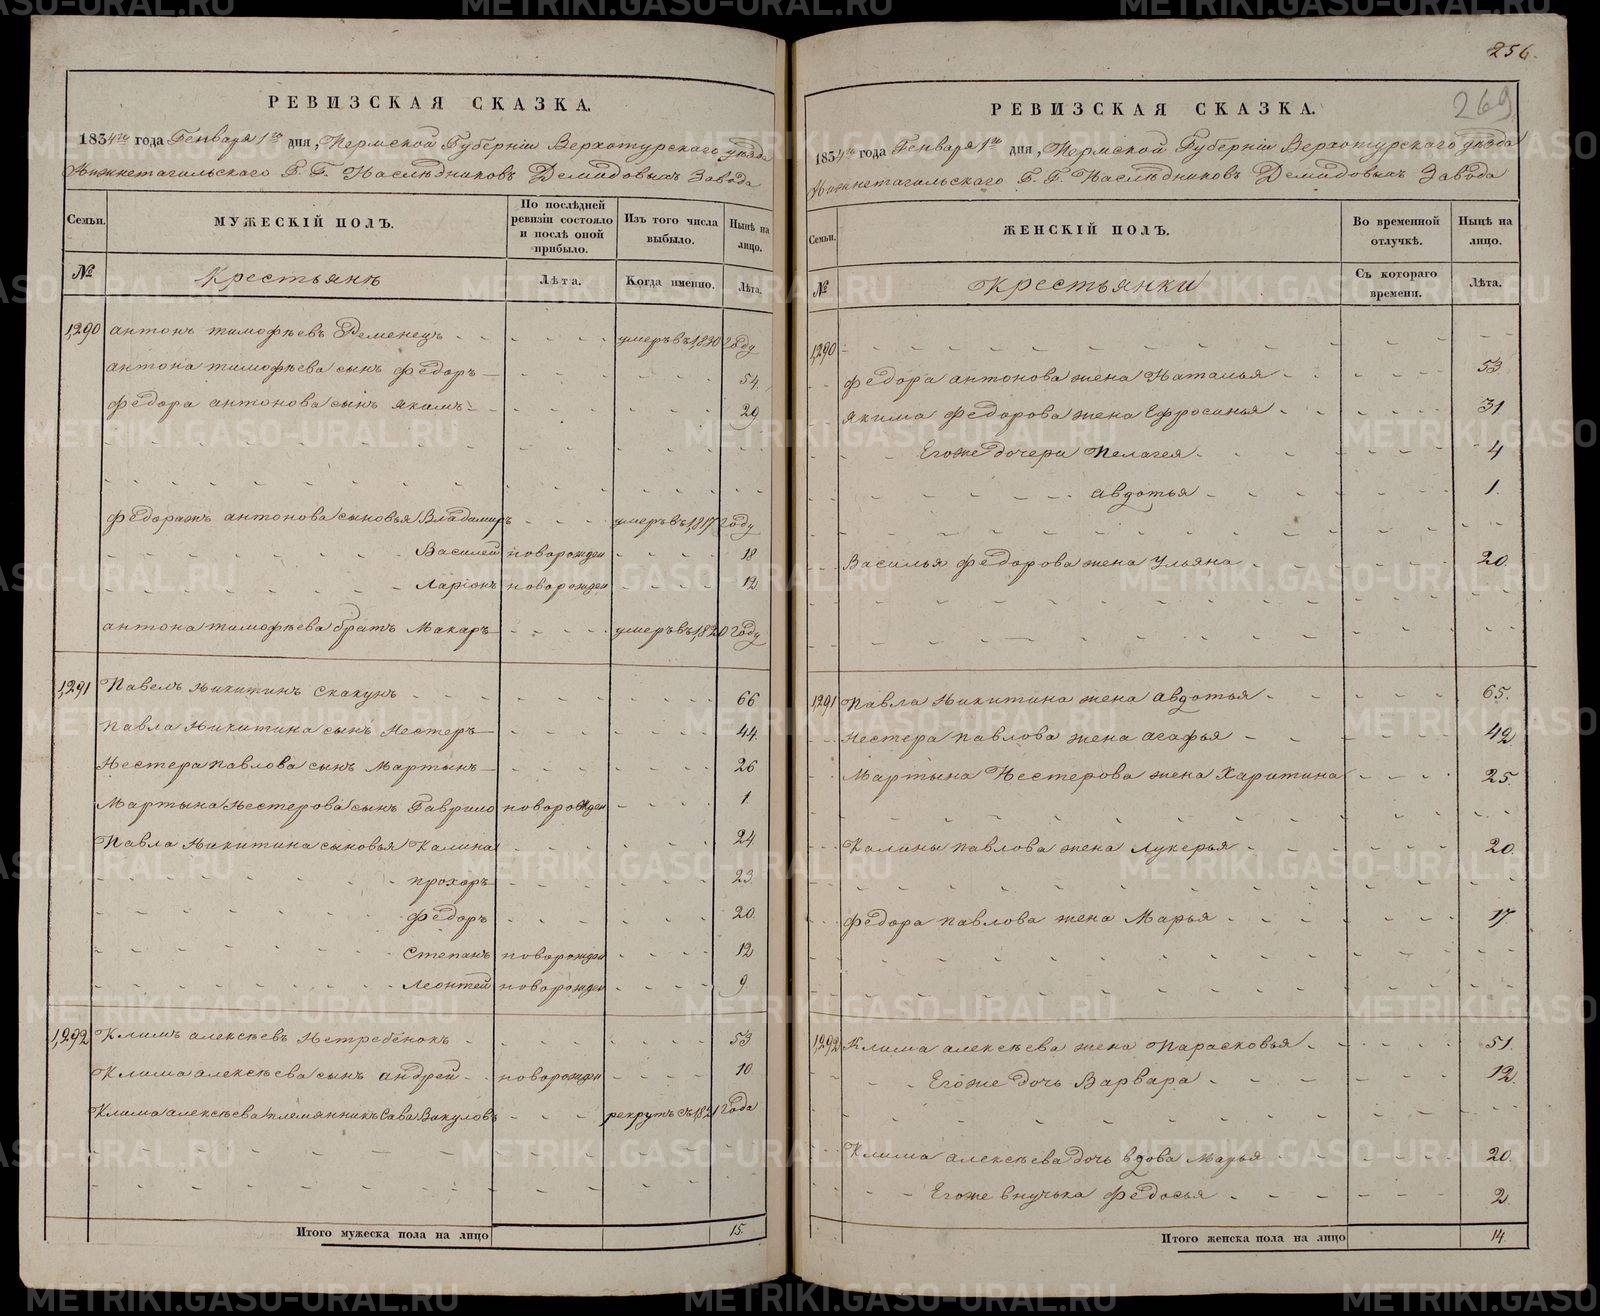 256.
269
РЕВИЗСКАЯ СКАЗКА.
1834го года Генваря 1го дня, Пермской Губерніи Верхотурскаго уѣзда
Нижнетагильскаго Г. Г. Наслѣдниковъ Демидовыхъ Завода
Семьи.
МУЖЕСКІЙ ПОЛЪ.
По послѣдней ревизіи состояло и послѣ оной прибыло.
Изъ того числа выбыло.
Нынѣ на лицо.
№
Крестьянѣ
Лѣта.
Когда именно.
Лѣта.
1,290 антонъ тимофѣевъ Ременецъ умеръ въ 1,830 году
антона тимофѣева сынъ федоръ 54.
федора антонова сынъ якимъ 29
федоражъ антонова сыновья Владимиръ умеръ въ 1,817 году
Василей новорожден 18
Ларіонъ новорожден 12
антона тимофѣева братъ Макаръ умеръ въ 1,820 году
1,291 Павелъ Никитинъ Скакунъ 66
Павла Никитина сынъ Нестеръ 44.
Нестера Павлова сынъ Мартынъ 26
Мартына Нестерова сынъ Гаврило новорожден 1
Павла Никитина сыновья Калина 24
прохоръ 23.
федоръ 20.
Степанъ новорожден 12
Леонтей новорожден 9
1,292 Климъ алексѣевъ Нетребенокъ 53
Клима алексѣева сынъ андрей новорожден 10
Клима алексѣева племянникъ Сава Вакуловъ рекрутъ съ 1,821 года
Итого мужеска пола на лицо 15.
РЕВИЗСКАЯ СКАЗКА.
1834го года Генваря 1го дня, Пермской Губерніи Верхотурскаго уѣзда
Нижнетагильскаго Г. Г. Наслѣдниковъ Демидовыхъ Завода
Семьи.
ЖЕНСКІЙ ПОЛЪ.
Во временной отлучкѣ.
Нынѣ на лицо.
№
Крестьянки
Съ котораго времени.
Лѣта.
1,290
федора антонова жена Наталья 53.
якима федорова жена Ефросинья 31
Егоже дочери Пелагея 4
авдотья 1.
Василья федорова жена Ульяна 20.
1,291 Павла Никитина жена авдотья 65.
Нестера павлова жена агафья 42
Мартына Нестерова жена Харитина 25.
Калины павлова жена Лукерья 20.
федора павлова жена Марья 17
1,292 Клима алексѣева жена Парасковья 51.
Егоже дочь Варвара 12.
Клима алексѣева дочь вдова Марья 20.
Егоже внучька федосья 2
Итого женска пола на лицо 14.
METRIKI.GASO-URAL.RU